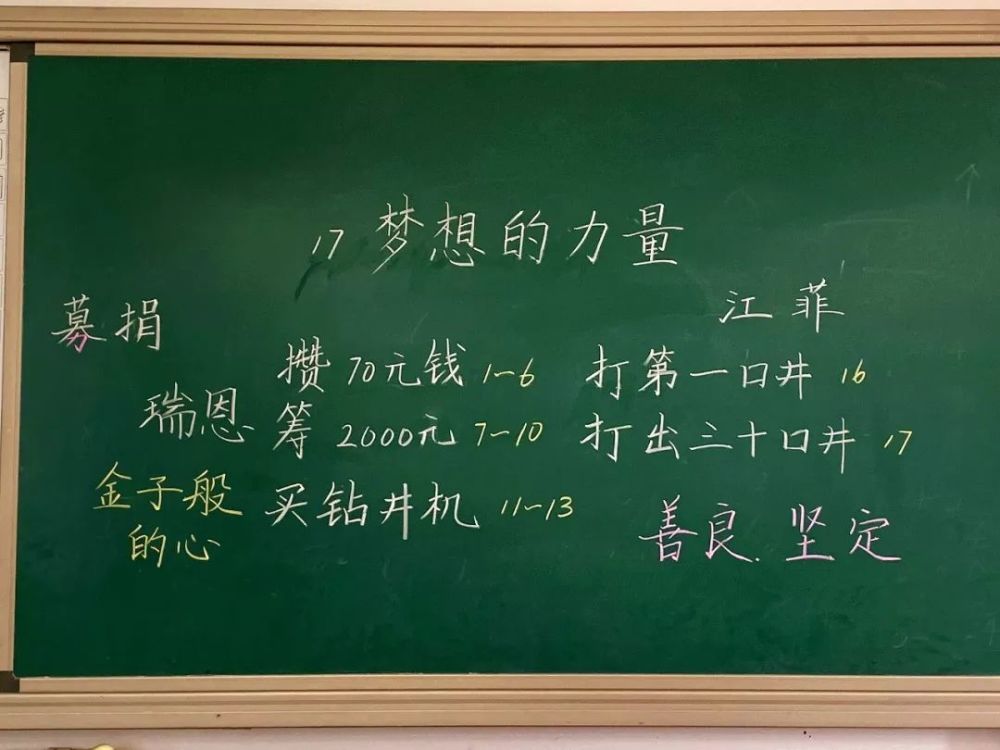 17 梦想的力量
江菲
募捐
攒70元钱 1-6 打第一口井 16
瑞恩 筹2000元 7-10 打出三十口井 17
金子般 买钻井机 11-13
的心 善良.坚定